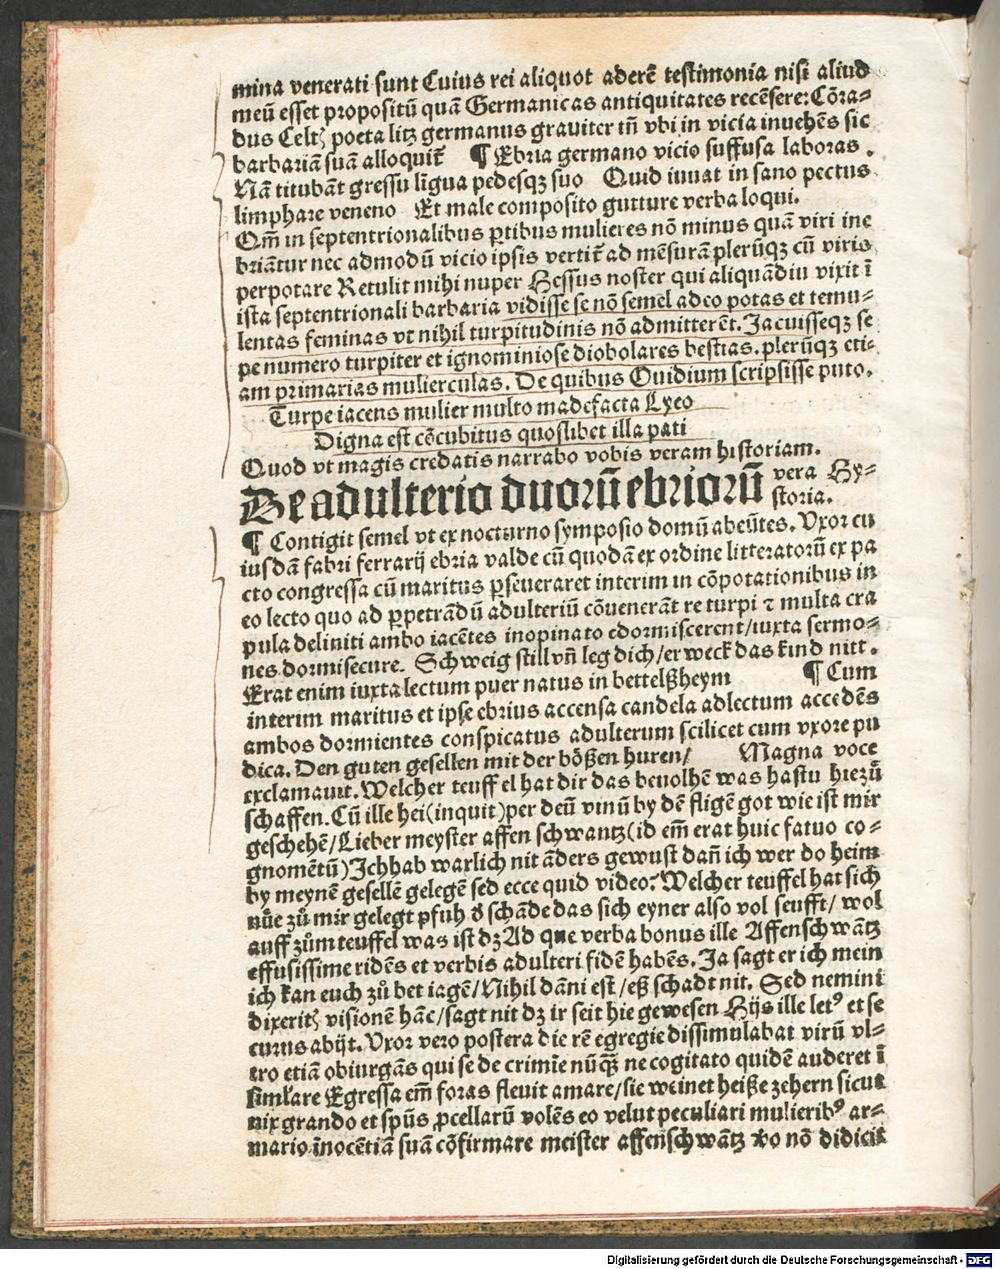 mina venerati sunt Cuius rei aliquot aderẽ testimonia nisi aliud
meũ esset propositũ quã Germanicas antiquitates recẽsere: Cõra-
dus Celtꝭ poeta litꝫ germanus grauiter tñ vbi in vicia inuehẽs sic
barbariã suã alloquit᷑ ¶ Ebria germano vicio suffusa laboras.
Nã titubãt gressu lĩgua pedesqꝫ suo Quid iuuat in sano pectus
limphare veneno Et male composito gutture verba loqui.
Qm̃ in septentrionalibus ꝑtibus mulieres nõ minus quã viri ine
briãtur nec admodũ vicio ipsis vertit᷑ ad mẽsurã plerũqꝫ cũ viris
perpotare Retulit mihi nuper Hessus noster qui aliquãdiu vixit ĩ
ista septentrionali barbaria vidisse se nõ semel adeo potas et temu-
lentas feminas vt nihil turpitudinis nõ admitterẽt. Iacuisseqꝫ se
pe numero turpiter et ignominiose diobolares bestias. plerũqꝫ eti-
am primarias mulierculas. De quibus Ouidium scripsisse puto.
Turpe iacens mulier multo madefacta Lyeo
Digna est cõcubitus quoslibet illa pati
Quod vt magis credatis narrabo vobis veram historiam.
De adulterio duorũ ebriorũ vera Hy-
storia.
¶ Contigit semel vt ex nocturno symposio domũ abeũtes. Vxor cu
iusdã fabri ferrarij ebria valde cũ quodã ex ordine litteratorũ ex pa
cto congressa cũ maritus ꝑseueraret interim in cõpotationibus in
eo lecto quo ad ꝑpetrãdũ adulteriũ cõuenerãt re turpi ⁊ multa cra
pula deliniti ambo iacẽtes inopinato edormiscerent/iuxta sermo-
nes dormisecure. Schweig still vñ leg dich/erweck das kind nitt.
Erat enim iuxta lectum puer natus in bettelßheym ¶ Cum
interim maritus et ipse ebrius accensa candela ad lectum accedẽs
ambos dormientes conspicatus adulterum scilicet cum vxore pu
dica. Den guten gesellen mit der bößen huren/ Magna voce
exclamauit. Welcher teuffel hat dir das beuolhẽ was hastu hiezů
schaffen. Cũ ille hei(inquit)per deũ vinũ by dẽ fligẽ got wie ist mir
geschehẽ/Lieber meyster affen schwantz(id em̃ erat huic fatuo co-
gnomẽtũ)Ich hab warlich nit ãders gewust dañ ich wer do heim
by meynẽ gesellẽ gelegẽ sed ecce quid video? Welcher teuffel hat sich
nůe zů mir gelegt pfuh ď schãde das sich eyner also vol seufft/ wol
auff zům teuffel was ist dꝫ Ad que verba bonus ille Affenschwãtz
effusissime ridẽs et verbis adulteri fidẽ habẽs. Ja sagt er ich mein
ich kan euch zů bet iagẽ/Nihil dãni est/eß schadt nit. Sed nemini
dixeritꝭ visionẽ hãc/sagt nit dꝫ ir seit hie gewesen Hijs ille letꝰ et se
curus abijt. Vxor vero postera die rẽ egregie dissimulabat virũ vl-
tro etiã obiurgãs qui se de crimĩe nũqꝫ̃ ne cogitato quidẽ auderet ĩ
simłare Egressa em̃ foras fleuit amare/sie weinet heiße zehern sicut
nix grando et spũs ꝓcellarũ volẽs eo velut peculiari mulieribꝰ ar-
mario ĩnocẽtiã suã cõfirmare meister affenschwãtz ꝟo nõ didicit
Digitalisierung gefördert durch die Deutsche Forschungsgemeinschaft - DFG